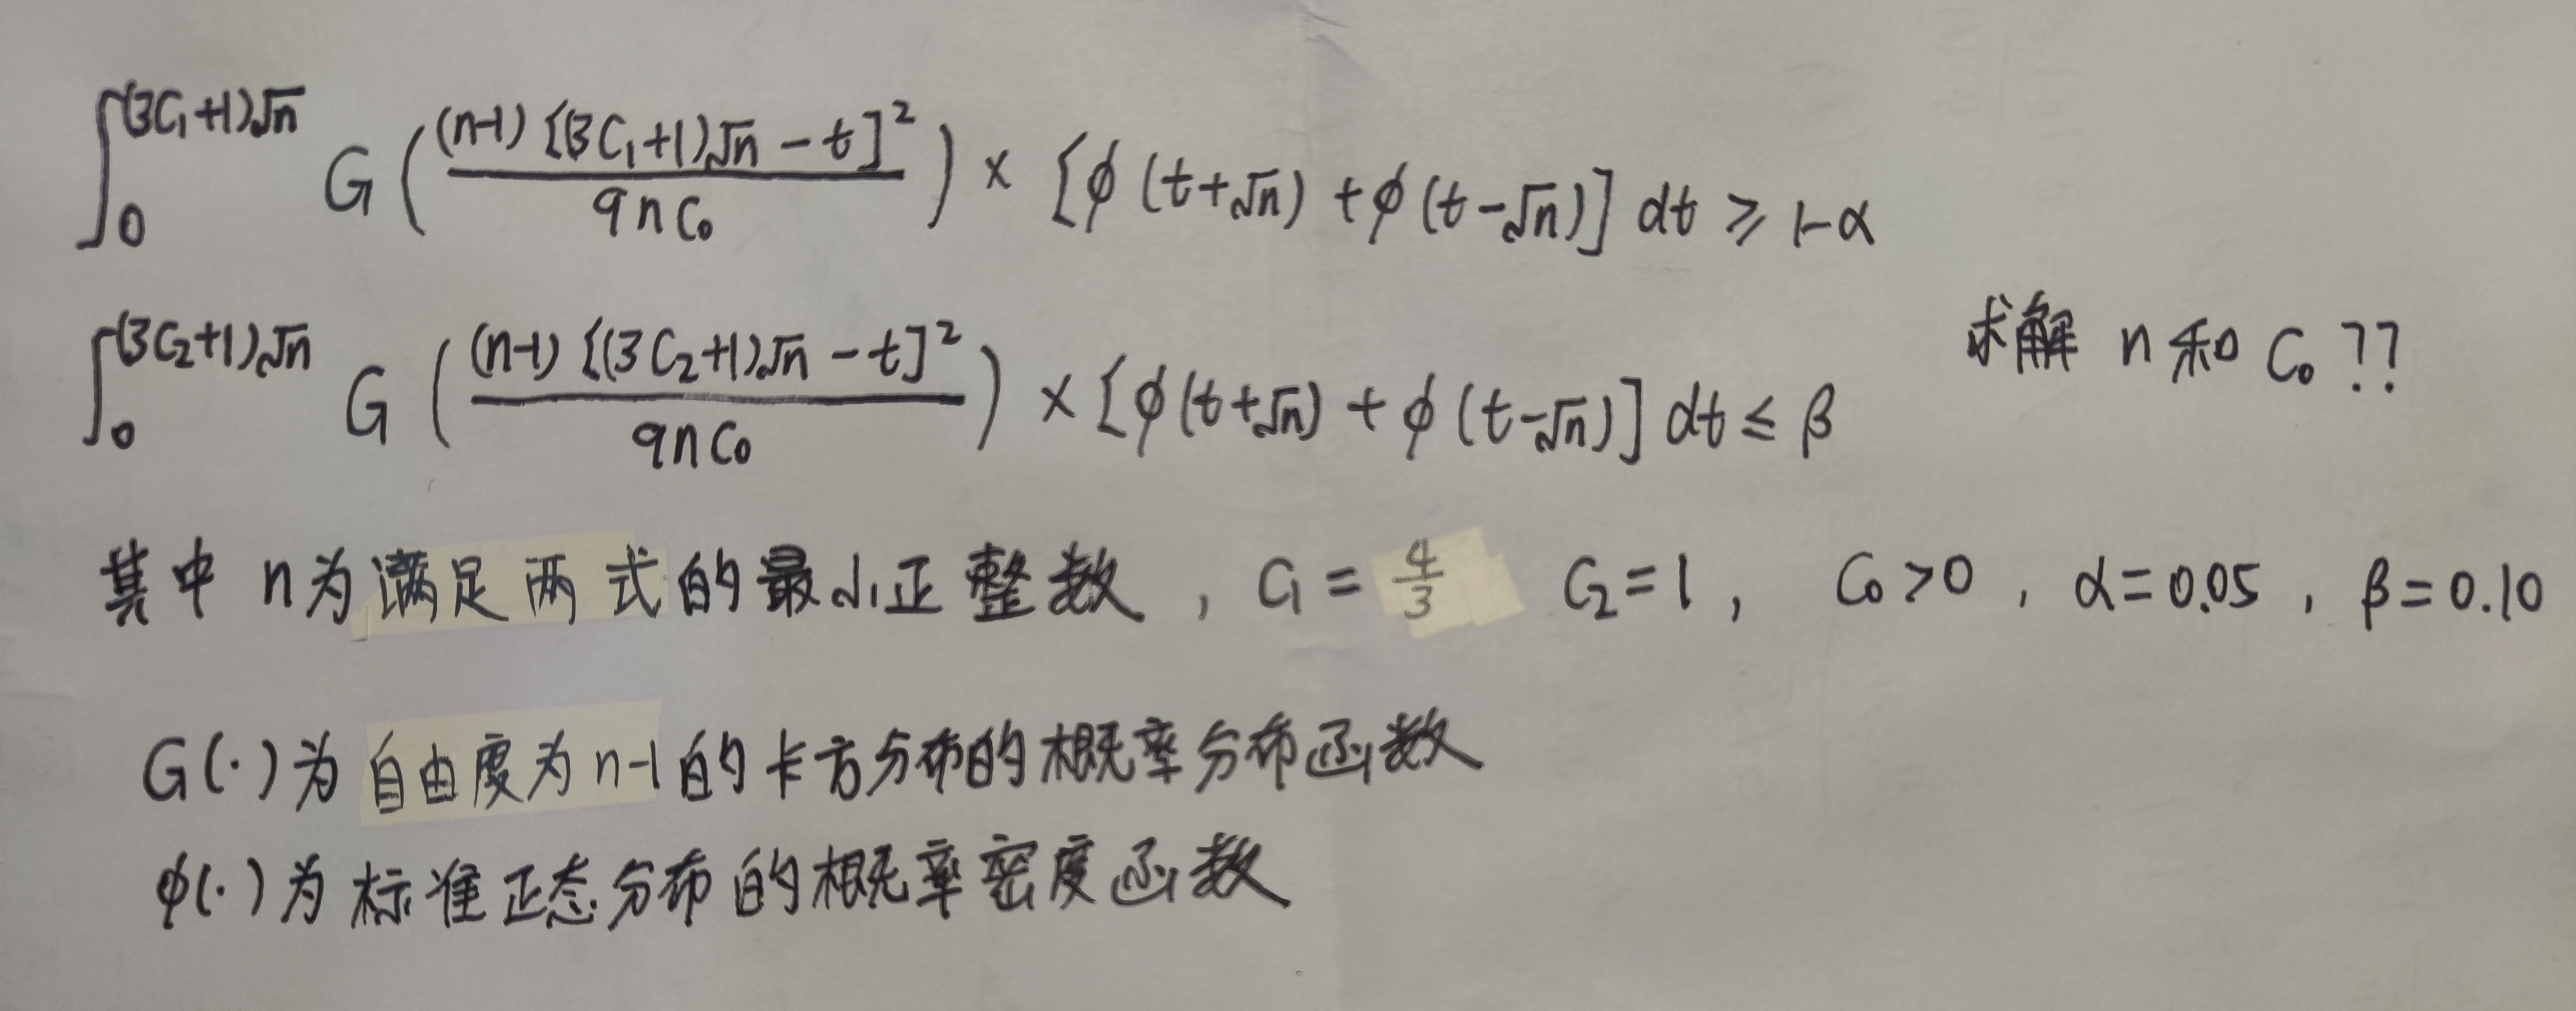 ∫₀^((3C₁+1)√n) G( (n-1)[(3C₁+1)√n - t]² / 9nC₀ ) × [ϕ(t+√n) + ϕ(t-√n)] dt ≥ 1-α
∫₀^((3C₂+1)√n) G( (n-1)[(3C₂+1)√n - t]² / 9nC₀ ) × [ϕ(t+√n) + ϕ(t-√n)] dt ≤ β
求解 n 和 C₀ ??
其中 n为满足两式的最小正整数, C₁ = 4/3 C₂=1, C₀>0, α=0.05, β=0.10
G(·)为自由度为n-1的卡方分布的概率分布函数
ϕ(·)为标准正态分布的概率密度函数